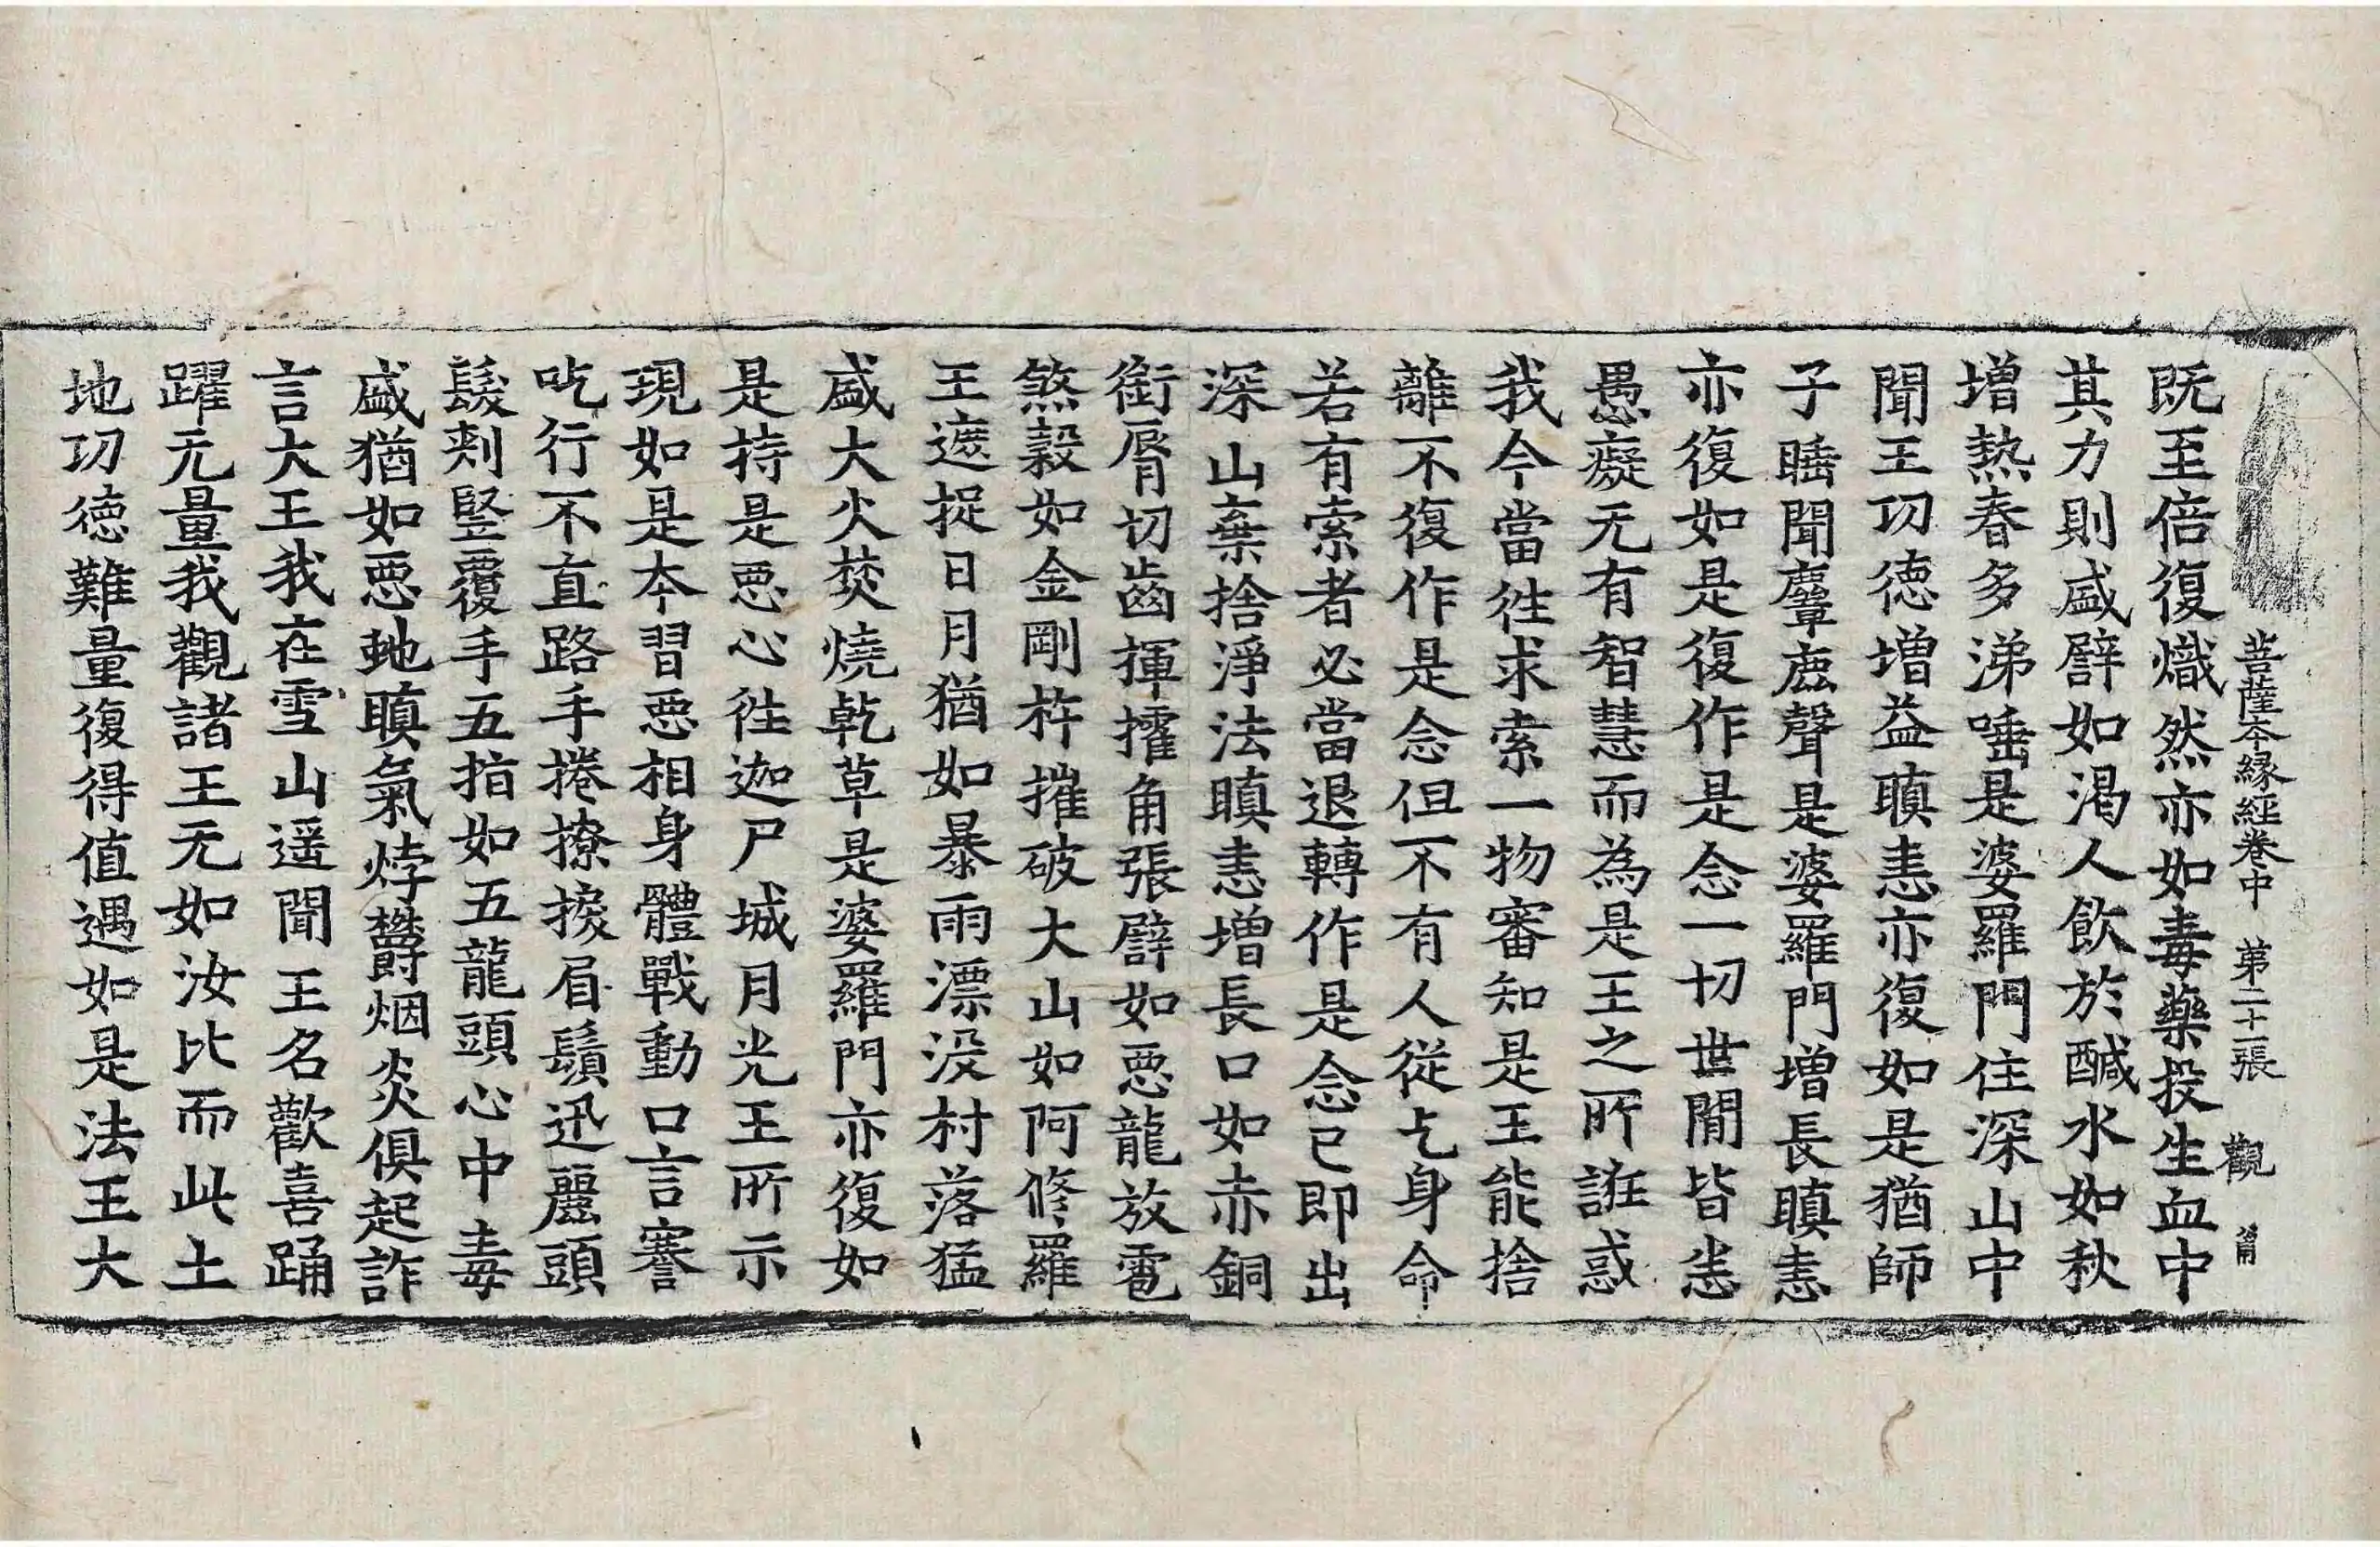 菩薩本緣經卷中 第二十二張 觀
既至倍復熾然亦如毒藥投生血中
其力則盛譬如渴人飲於醎水如秋
增熱春多涕唾是婆羅門住深山中
聞王功德增益瞋恚亦復如是猶師
子睡聞麞鹿聲是婆羅門增長瞋恚
亦復如是復作是念一切世間皆恙
愚癡无有智慧而為是王之所誑惑
我今當往求索一物審知是王能捨
離不復作是念但不有人從乞身命
若有索者必當退轉作是念已即出
深山棄捨淨法瞋恚增長口如赤銅
銜脣切齒揮攉角張譬如惡龍放雹
煞穀如金剛杵摧破大山如阿修羅
王遮捉日月猶如暴雨漂沒村落猛
盛大火焚燒乾草是婆羅門亦復如
是持是惡心往迦尸城月光王所示
現如是本習惡相身體戰動口言謇
吃行不直路手捲撩捩眉鬚迅麗頭
髮刾竪覆手五指如五龍頭心中毒
盛猶如惡虵瞋氣㶿欝烟炎俱起詐
言大王我在雪山遥聞王名歡喜踊
躍无量我觀諸王无如汝比而此土
地功德難量復得值遇如是法王大